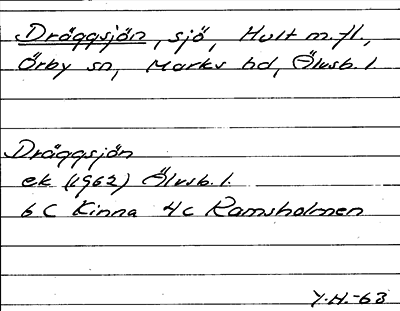 Dräggsjön, sjö, Hult m.fl.,
Örby sn, Marks hd, Älvsb. l
Dräggsjön
ek (1962) Älvsb. l.
6 C Kinna 4c Ramsholmen
Y.H.-63